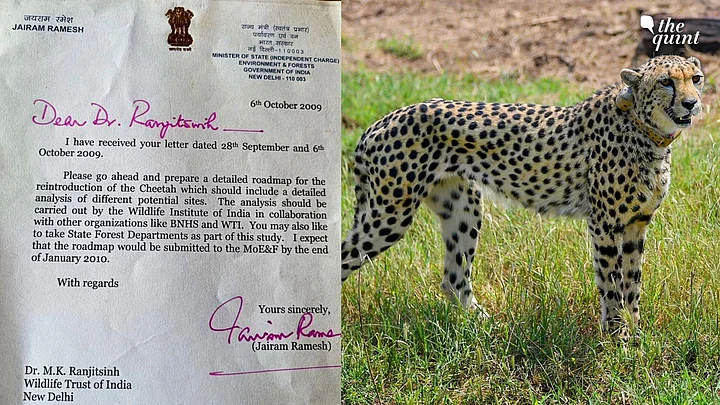 जयराम रमेश
JAIRAM RAMESH
राज्य मंत्री (स्वतंत्र प्रभार)
पर्यावरण एवं वन
भारत सरकार
नई दिल्ली-110003
MINISTER OF STATE (INDEPENDENT CHARGE)
ENVIRONMENT & FORESTS
GOVERNMENT OF INDIA
NEW DELHI - 110 003
6th October 2009
Dear Dr. Ranjitsinh
I have received your letter dated 28th September and 6th
October 2009.
Please go ahead and prepare a detailed roadmap for the
reintroduction of the Cheetah which should include a detailed
analysis of different potential sites. The analysis should be
carried out by the Wildlife Institute of India in collaboration
with other organizations like BNHS and WTI. You may also like
to take State Forest Departments as part of this study. I expect
that the roadmap would be submitted to the MoE&F by the end
of January 2010.
With regards
Yours sincerely,
Jairam Ramesh
(Jairam Ramesh)
Dr. M.K. Ranjitsinh
Wildlife Trust of India
New Delhi
the
quint